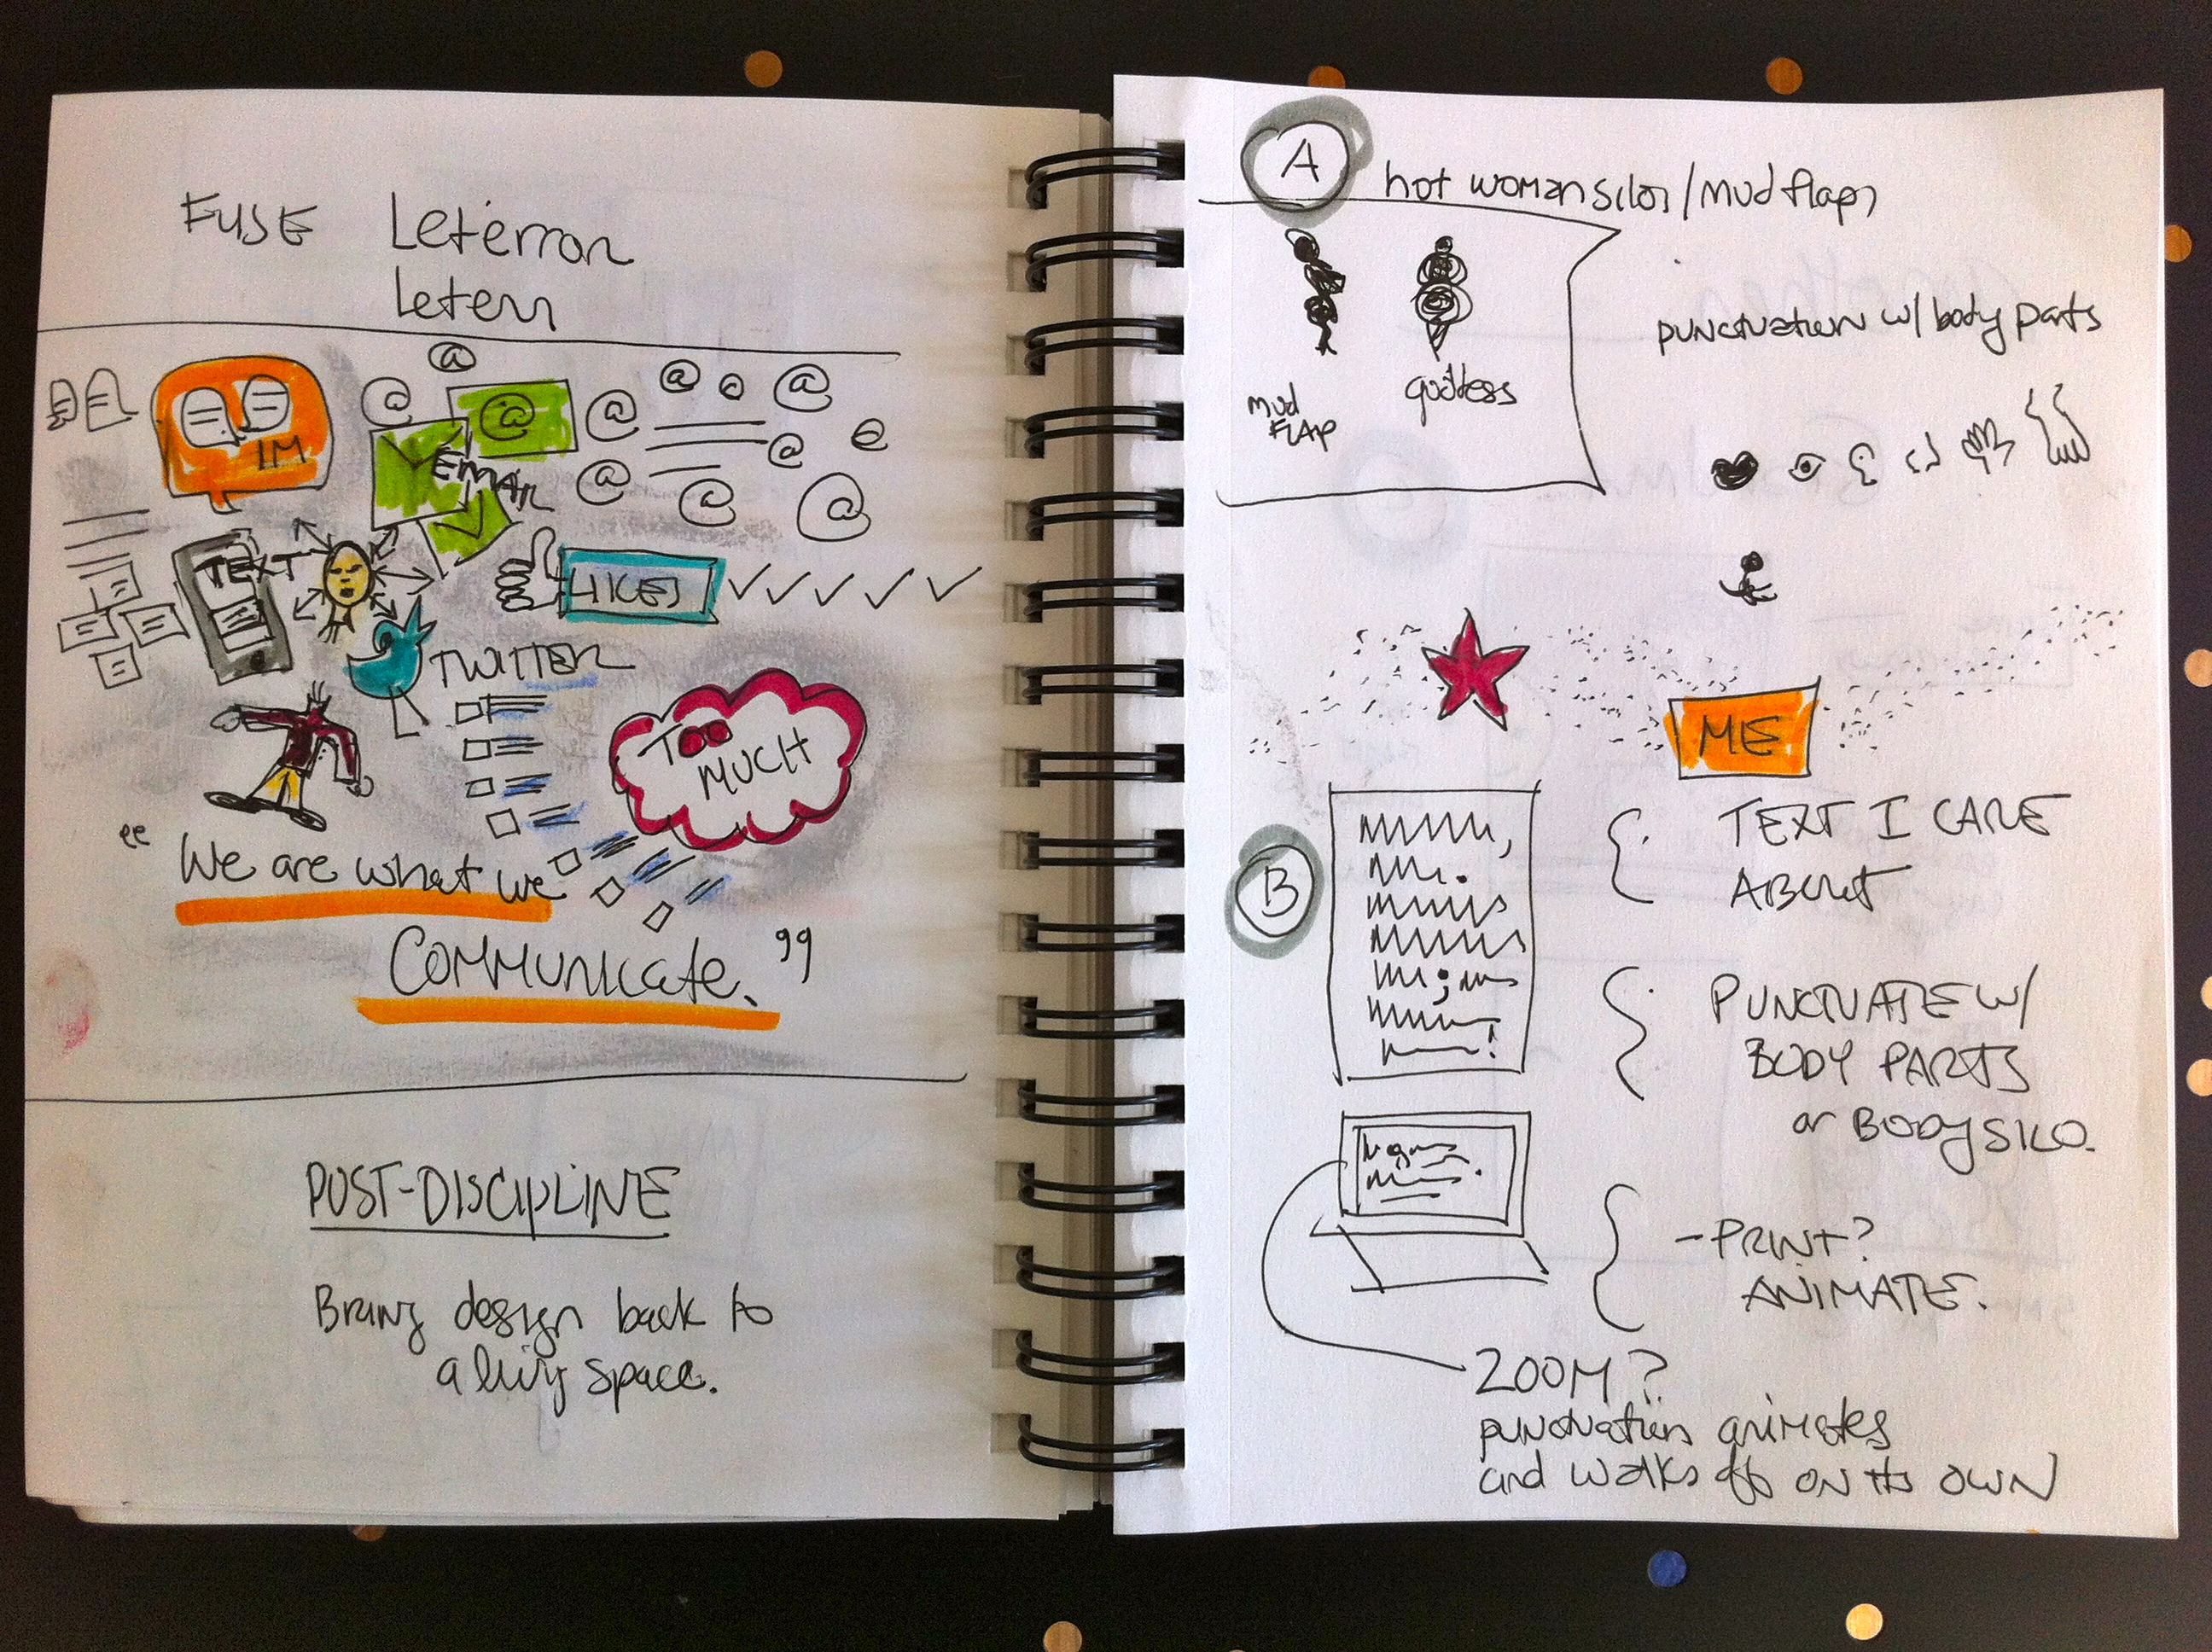 FUSE Leterror
Leterr
@
@ @ @ @ @
IM
@ @ @
EMAIL
@ @ @
TEXT
LIKES
TWITTER
TOO
MUCH
"We are what we
COMMUNICATE."
POST-DISCIPLINE
Bring design back to
a living space.
A hot woman silos/mud flaps
punctuation w/ body parts
mud
FLAP
goddess
ME
B
TEXT I CARE
ABOUT
PUNCTUATE W/
BODY PARTS
or BODY SILO.
- PRINT?
ANIMATE.
ZOOM?
punctuation animates
and walks off on its OWN